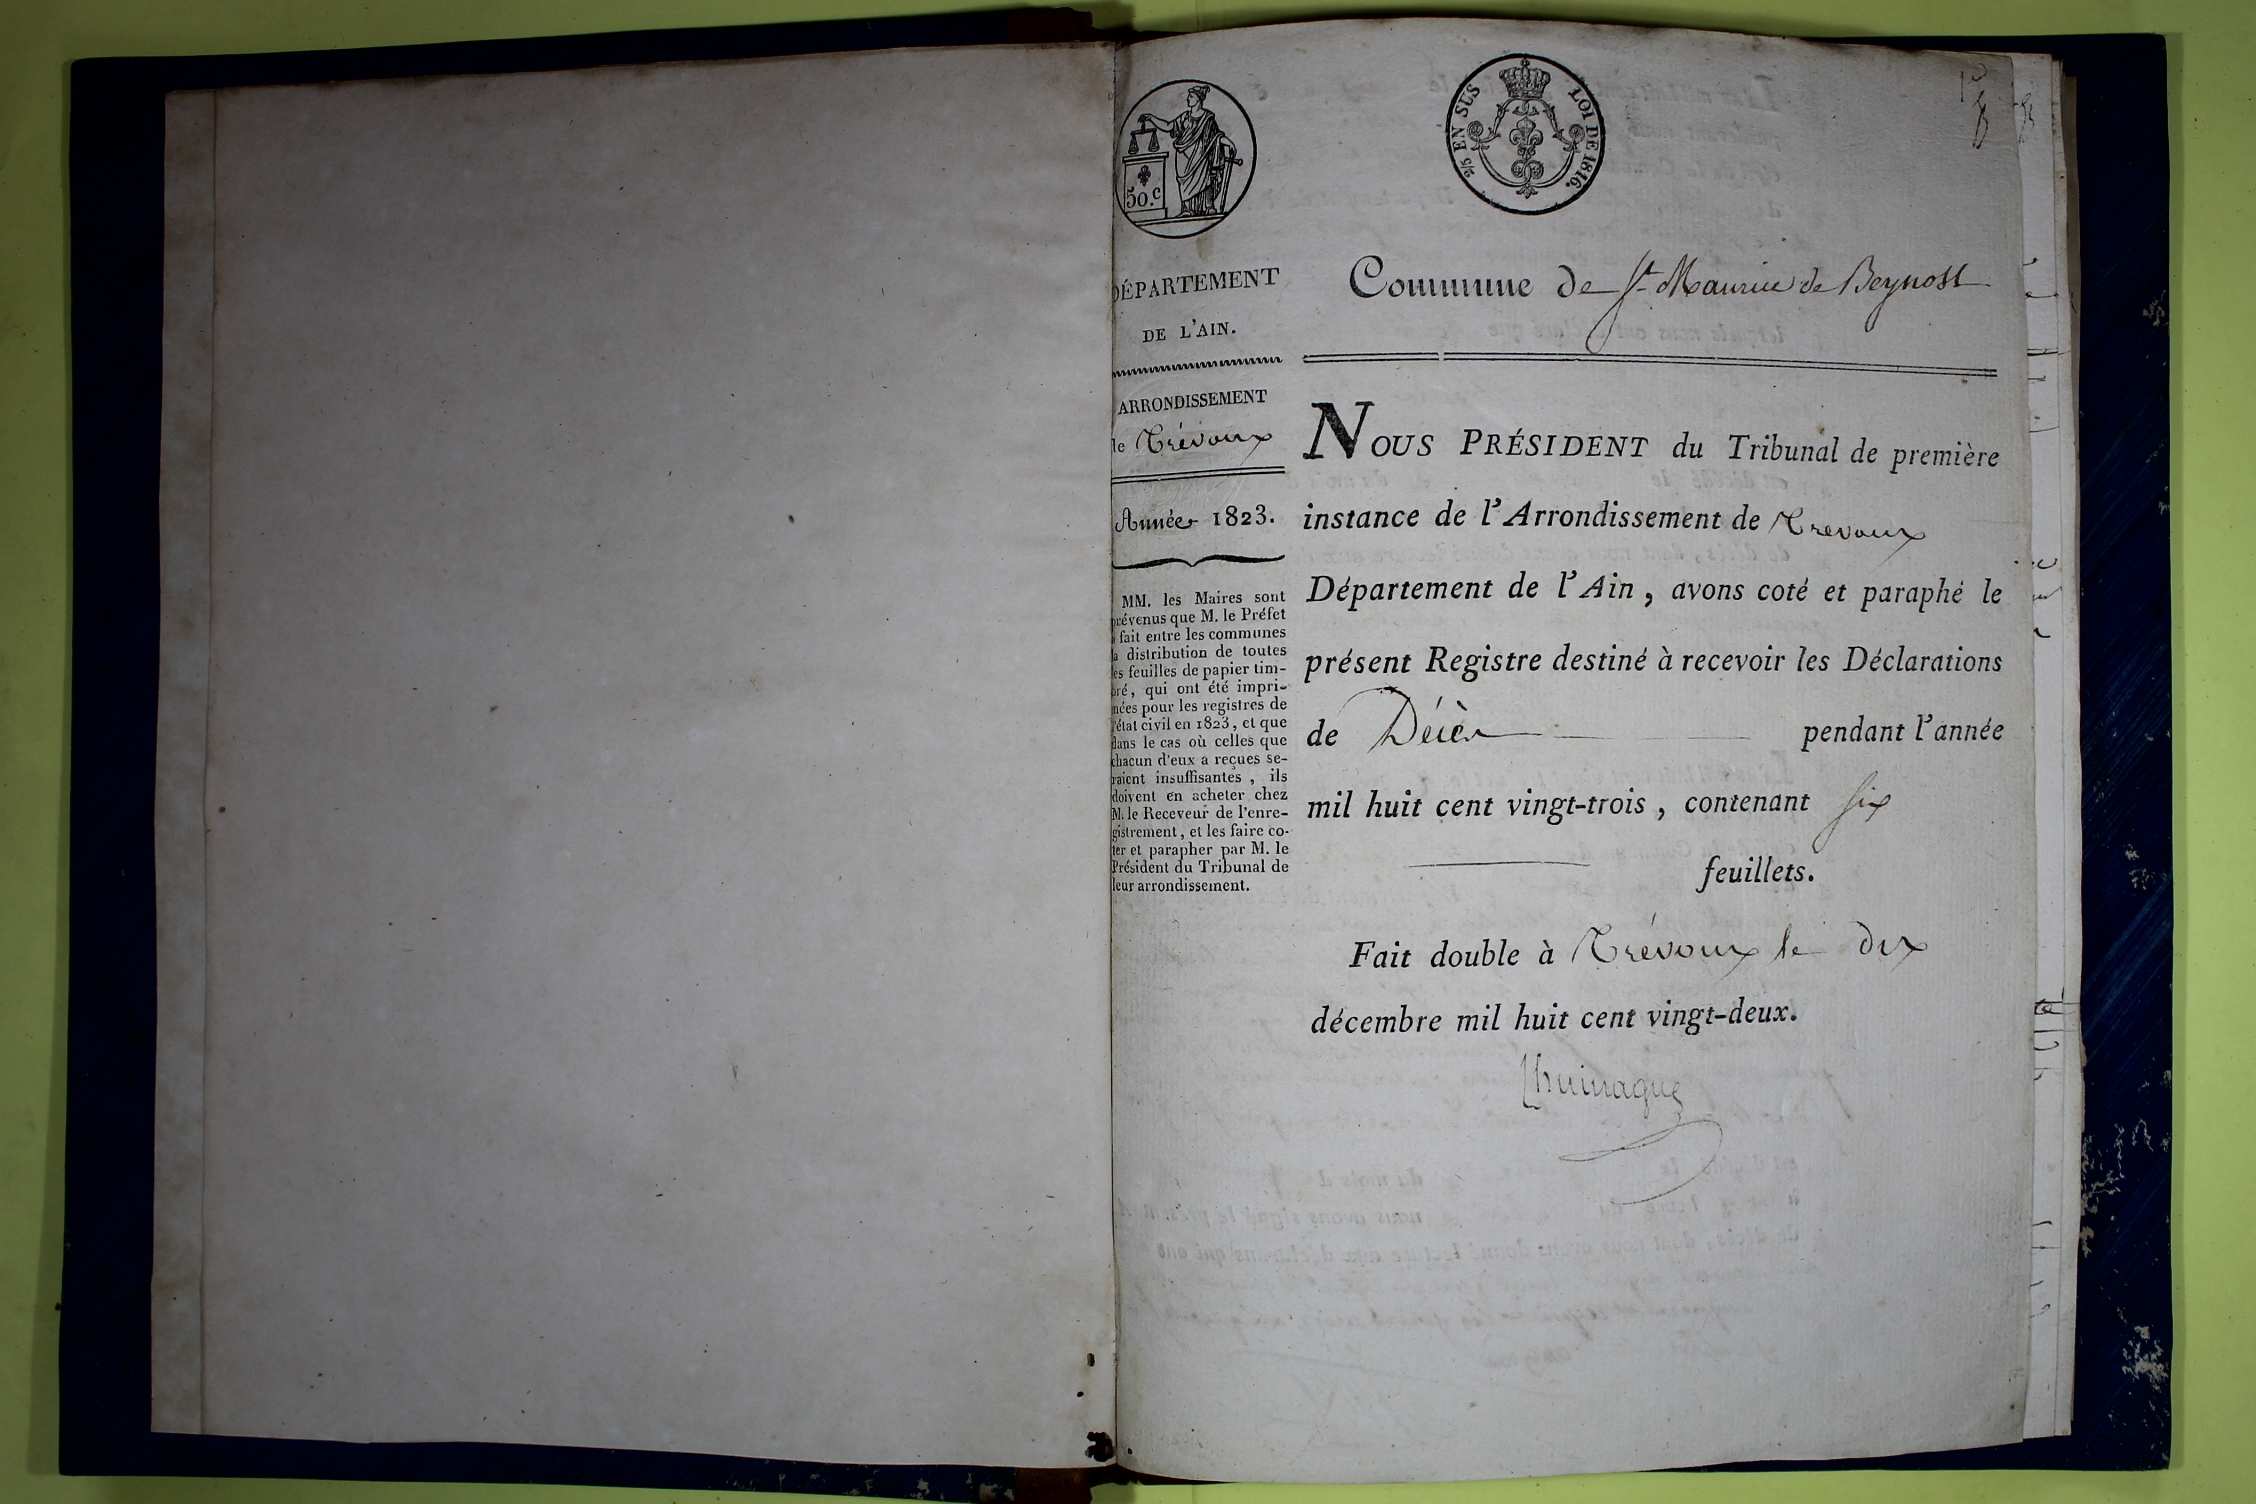 50.c
2/5 EN SUS LOI DE 1816.
DÉPARTEMENT
DE L'AIN.
ARRONDISSEMENT
de Trévoux
Année 1823.
MM. les Maires sont
prévenus que M. le Préfet
a fait entre les communes
la distribution de toutes
les feuilles de papier tim-
bré, qui ont été impri-
mées pour les registres de
l'état civil en 1823, et que
dans le cas où celles que
chacun d'eux a reçues se-
raient insuffisantes, ils
doivent en acheter chez
M. le Receveur de l'enre-
gistrement, et les faire co-
ter et parapher par M. le
Président du Tribunal de
leur arrondissement.
Commune de St Maurice de Beynost
NOUS PRÉSIDENT du Tribunal de première
instance de l'Arrondissement de Trevoux
Département de l'Ain, avons coté et paraphé le
présent Registre destiné à recevoir les Déclarations
de Décès pendant l'année
mil huit cent vingt-trois, contenant six
feuillets.
Fait double à Trévoux le dix
décembre mil huit cent vingt-deux.